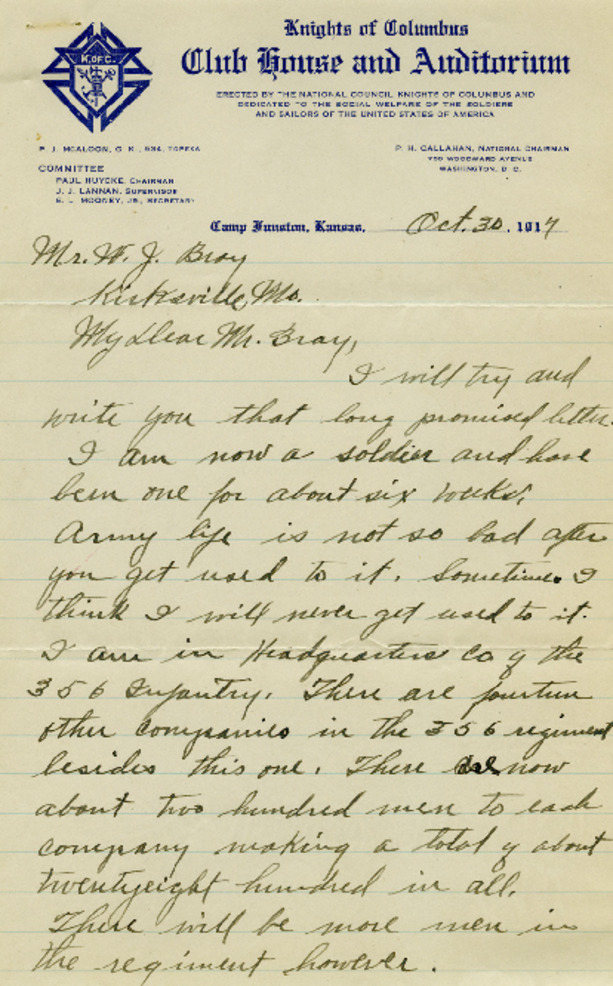 K. of C.
Knights of Columbus
Club House and Auditorium
ERECTED BY THE NATIONAL COUNCIL KNIGHTS OF COLUMBUS AND
DEDICATED TO THE SOCIAL WELFARE OF THE SOLDIERS
AND SAILORS OF THE UNITED STATES OF AMERICA
P. J. MCALOON, G. K., 934, TOPEKA
P. H. CALLAHAN, NATIONAL CHAIRMAN
WOODWARD AVENUE
WASHINGTON, D. C.
COMMITTEE
PAUL HUYCKE, CHAIRMAN
J. J. LANNAN, SUPERVISOR
MOONEY, JR., SECRETARY
Camp Funston, Kansas, Oct. 30, 1917
Mr. W. J. Bray
Kirksville, Mo.
My Dear Mr. Bray,
I will try and
write you that long promised letter.
I am now a soldier and have
been one for about six weeks.
Army life is not so bad after
you get used to it. Sometimes I
think I will never get used to it.
I am in Headquarters Co of the
356 Infantry. There are fourteen
other companies in the 356 regiment
besides this one. There are now
about two hundred men to each
company making a total of about
twentyeight hundred in all.
There will be more men in
the regiment however.